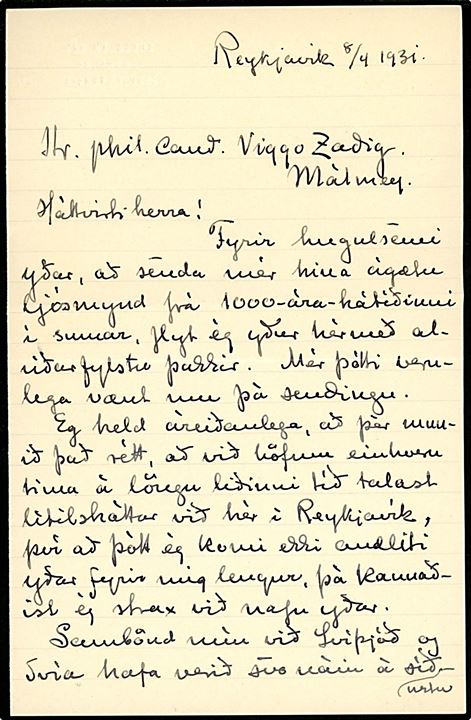 Reykjavik 8/4 1931.
Hr. phil. cand. Viggo Zadig.
Málmey.
Háttvirti herra!
Fyrir hugulsemi
yðar, að senda mér hina ágætu
ljósmynd frá 1000-ára-hátíðinni
í sumar, flyt ég yður hérmeð al-
úðarfylstu þakkir. Mér þótti veru-
lega vænt um þá sendingu.
Eg held áreiðanlega, að þér mun-
ið það rétt, að við höfum einhvern
tíma á löngu liðinni tíð talast
lítilsháttar við hér í Reykjavík,
því að þótt ég komi ekki andliti
yðar fyrir mig lengur, þá kannað-
ist ég strax við nafn yðar.
Sambönd mín við Svíþjóð og
Svía hafa verið svo náin á síð-
ustu